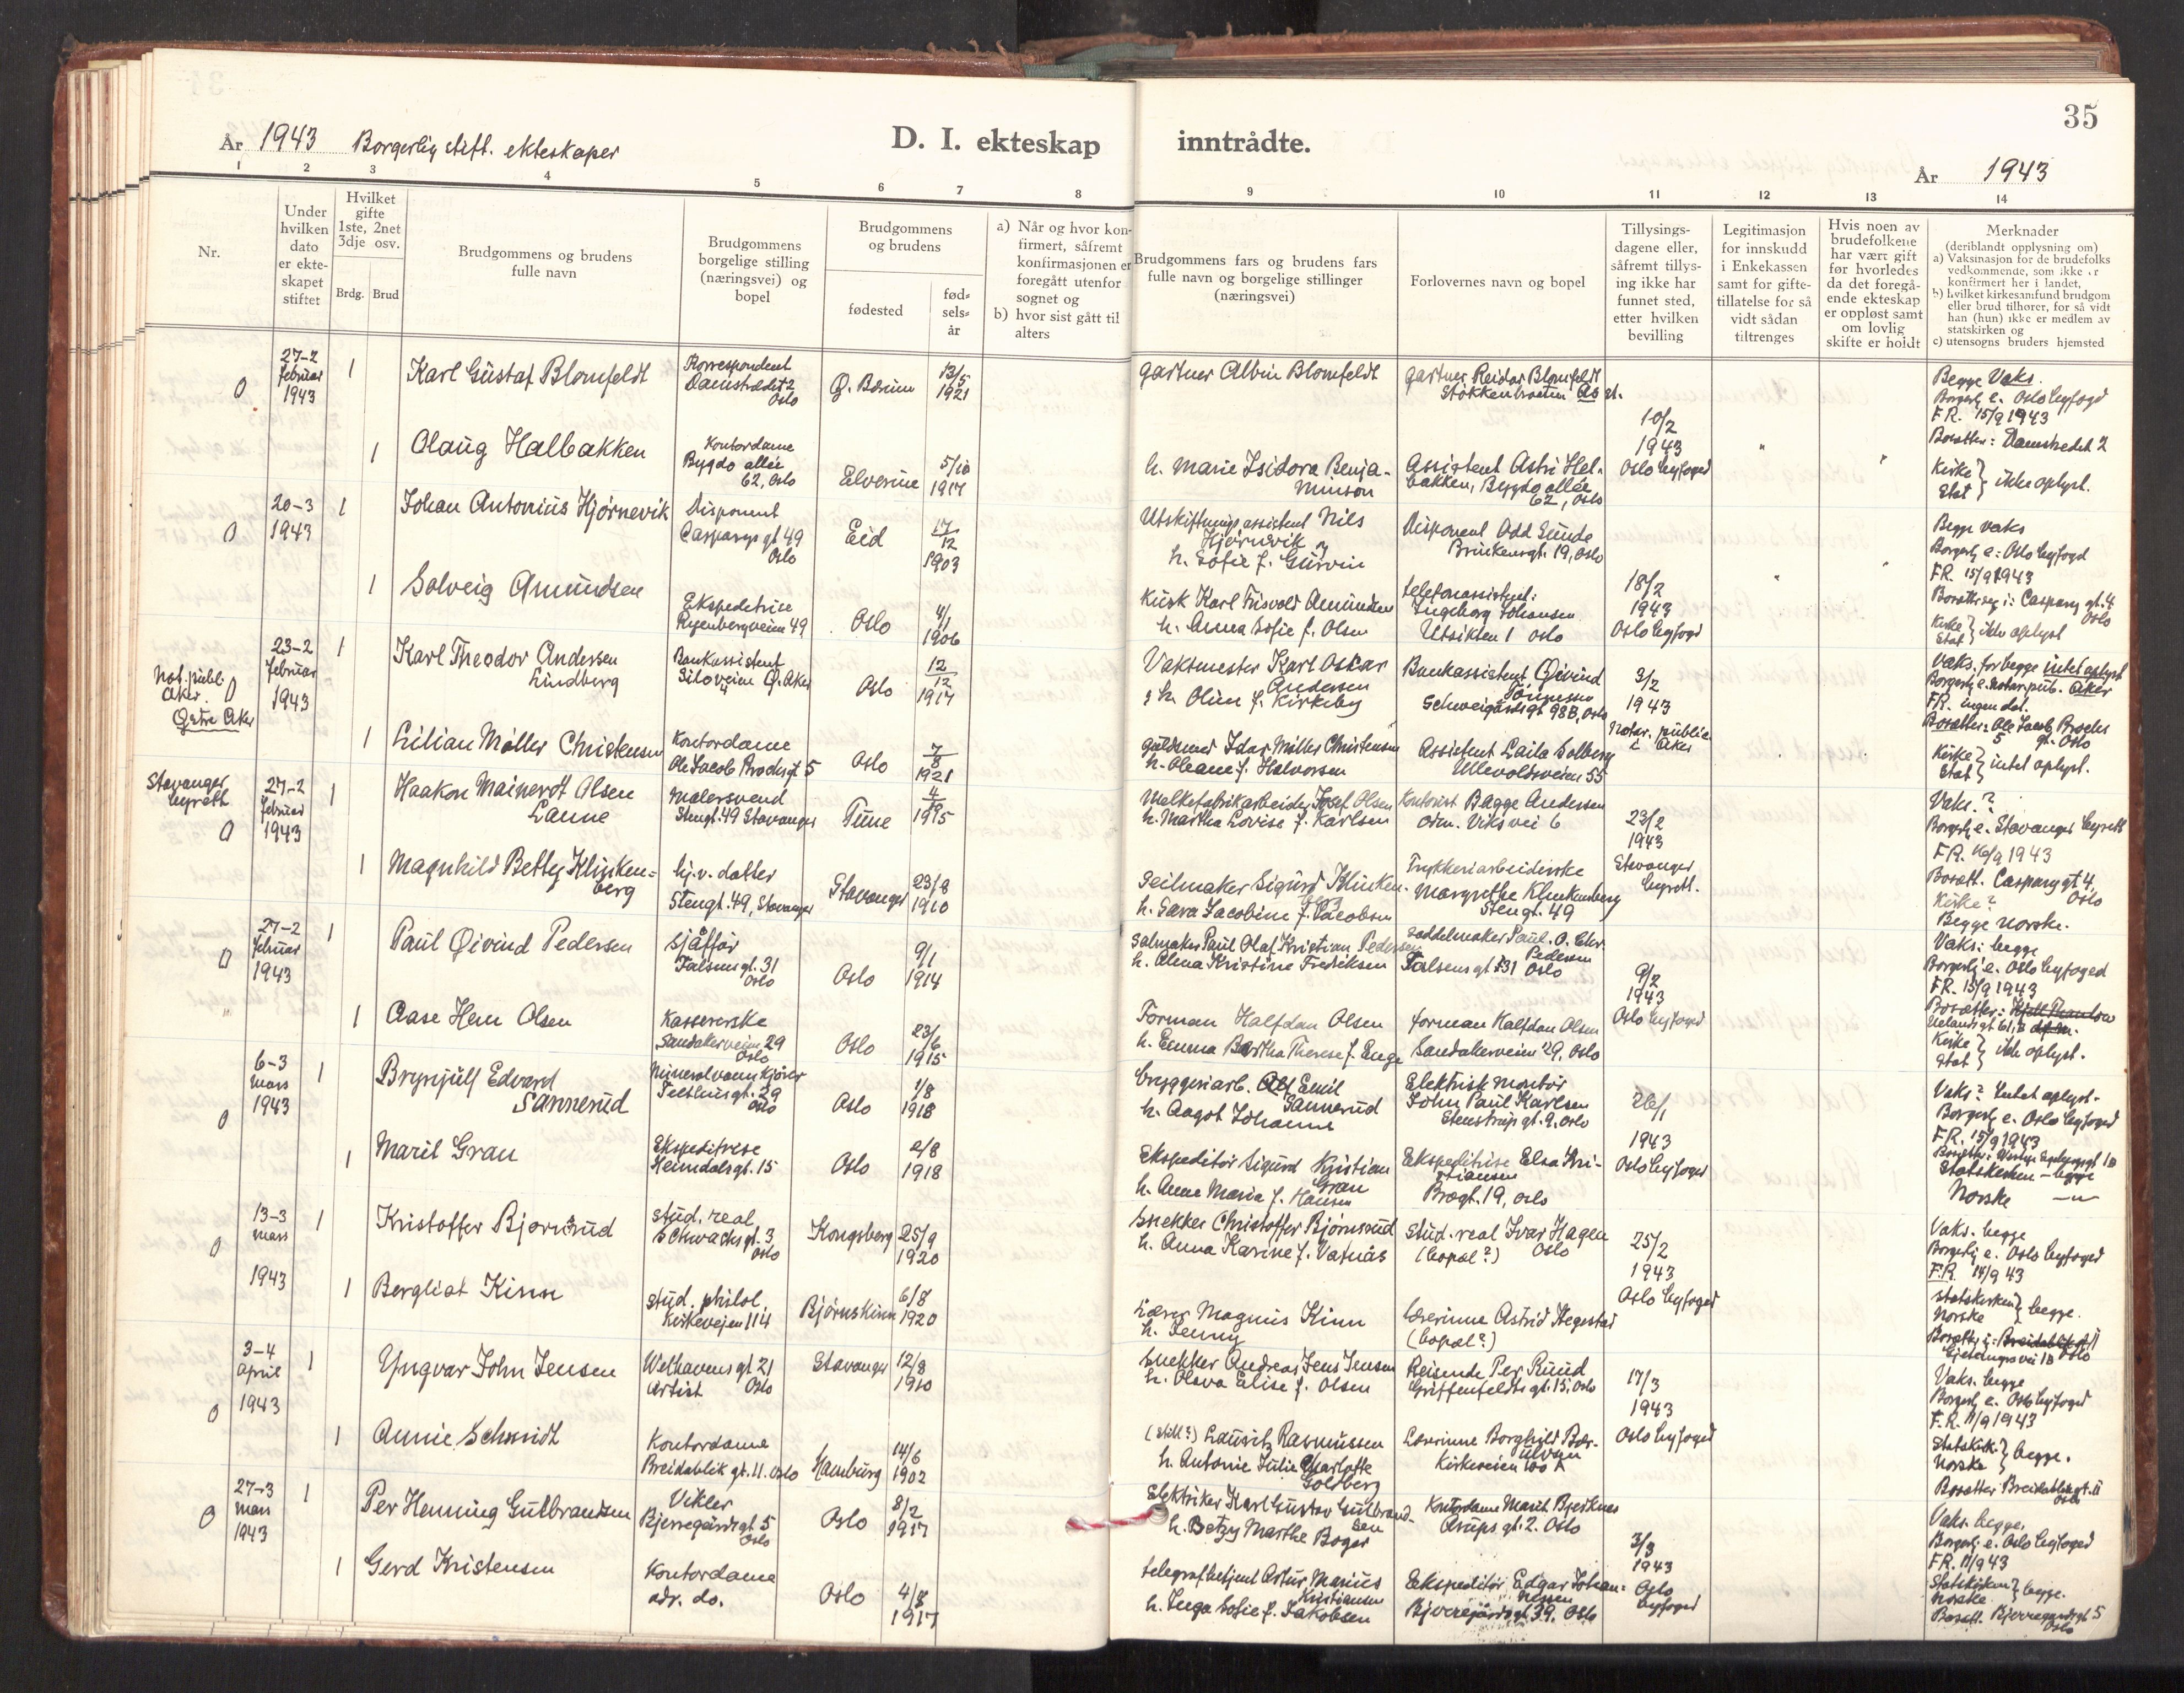 35
År 1943 Borgerlig stift. ekteskaper
D. I. ekteskap inntrådte.
År 1943
1 2 3 4 5 6 7 8 9 10 11 12 13 14
Nr.
Under
hvilken
dato
er ekte-
skapet
stiftet
Hvilket
gifte
1ste, 2net
3dje osv.
Brdg. Brud
Brudgommens og brudens
fulle navn
Brudgommens
borgelige stilling
(næringsvei) og
bopel
Brudgommens
og brudens
fødested
fød-
sels-
år
a) Når og hvor kon-
firmert, såfremt
konfirmasjonen er
foregått utenfor
sognet og
b) hvor sist gått til
alters
Brudgommens fars og brudens fars
fulle navn og borgelige stillinger
(næringsvei)
Forlovernes navn og bopel
Tillysings-
dagene eller,
såfremt tillys-
ing ikke har
funnet sted,
etter hvilken
bevilling
Legitimasjon
for innskudd
i Enkekassen
samt for gifte-
tillatelse for så
vidt sådan
tiltrenges
Hvis noen av
brudefolkene
har vært gift
før hvorledes
da det foregå-
ende ekteskap
er oppløst samt
om lovlig
skifte er holdt
Merknader
(deriblandt opplysning om)
a) Vaksinasjon for de brudefolks
vedkommende, som ikke er
konfirmert her i landet,
b) hvilket kirkesamfund brudgom
eller brud tilhører, for så vidt
han (hun) ikke er medlem av
statskirken og
c) utensogns bruders hjemsted
0
27-2
februar
1943
1
Karl Gustaf Blomfeldt
Korrespondent
Damstredet 2
Oslo
Ø. Bærum
13/5
1921
gartner Albin Blomfeldt
gartner Reidar Blomfeldt
Ås st.
10/2
1943
Oslo byfoged
Begge Vaks.
Borgerlig e. Oslo byfogd
F.R. 15/9 1943
Bosetter: Damstredet 2
Kirke } ikke oplyst.
Stat
1
Olaug Halbakken
Kontordame
Bygdø allée
62, Oslo
Elverum
5/10
1917
h. Marie Isidora Benja-
minson
Assistent Astri Hal-
bakken, Bygdø allée
62, Oslo
0
20-3
1943
1
Johan Antonius Hjørnevik
Disponent
Casparys gt 49
Oslo
Eid
17/12
1903
Utskiftningsassistent Nils
Hjørnevik og
h. Sofie f. Gurvin
Disponent Odd Sunde
Oslo
18/2
1943
Oslo byfogd
Begge vaks
Borgerlig e: Oslo byfogd
F.R. 15/9 1943
Bosetter seg i: Casparys gt. 4
Oslo
Kirke } ikke oplyst
Stat
1
Solveig Amundsen
Ekspeditrise
Ryenbergveien 49
Oslo
4/1
1906
Kusk Karl Trisvold Amundsen
h. Anna Sofie f. Olsen
telefonassistent:
Ingeborg Johansen
Utsikten 1 Oslo
Not. publ.
Aker. 0
Østre Aker
23-2
februar
1943
1
Karl Theodor Andersen
Lindberg
Bankassistent
Siloveien 4 Ø. Aker
Oslo
12/12
1917
Vaktmester Karl Oskar
Andersen
& h. Oline f. Kirkeby
Bankassistent Øivind
Tönnesen
Schweigårdsgt 98B, Oslo
3/2
1943
Notar. publ.
i Aker
Vaks. for begge intet oplyst
Borgerlig e. notar. pub. Aker
F.R. ingen dat.
Bosetter: Ole Jacob Brochs
gt. 5 Oslo
Kirke } intet oplyst.
Stat
1
Lilian Møller Christensen
Kontordame
Ole Jacob Brochsgt 5
Oslo
7/8
1921
gullsmed Idar Møller Christensen
h. Oleane f. Halvorsen
Assistent Laila Solberg
Ullevoldsveien 55
Stavanger
byrett
0
27-2
februar
1943
1
Haakon Mainerdt Olsen
Lanne
malersvend
Stengt. 49 Stavanger
Tune
4/
1915
Josef Olsen
h. Martha Lovise f. Karlsen
Kontorist Bagge Andersen
Viksvei 6
23/2
1943
Stavanger
byrett.
Vaks.?
Borgerlig e. Stavanger byrett
F.R. 16/9 1943
Bosett. Casparys gt 4.
Oslo
Kirke?
Begge norske.
1
Magnhild Betty Klinken-
berg
hj.v. datter
Stengt. 49, Stavanger
Stavanger
23/8
1910
Seilmaker Sigurd Klinken-
berg
h. Sara Jacobine f. Jacobsen
Trykkeriarbeiderske
Margrethe Klinkenberg
Stengt. 49
0
27-2
februar
1943
1
Paul Øivind Pedersen
sjåfför
Falsensgt. 31
Oslo
Oslo
9/1
1914
Salmaker Paul Olaf Kristian Pedersen
h. Alma Kristine Fredriksen
Saddelmaker Paul. O. Chr.
Pedersen
Falsensgt 31 Oslo
9/2
1943
Oslo byfoged
Vaks: begge
Borgerlig e. Oslo byfoged
F.R. 15/9 1943
Kirke } ikke oplyst.
Stat
1
Aase Hem Olsen
Kassererske
Sandakerveien 29
Oslo
Oslo
23/6
1915
Forman Halfdan Olsen
h. Emma Bertha Therese f. Enge
forman Halfdan Olsen
Sandakerveien 29, Oslo
0
6-3
mars
1943
1
Brynjulf Edvard
Sannerud
Mineralvannkjører
gt. 29
Oslo
Oslo
1/8
1918
bryggeriarb. Alf Emil
Sannerud
h. Aagot Johanne
Elektrisk montör
John Paul Karlsen
Stenstrups gt. 9, Oslo
26/1
1943
Oslo byfoged
Vaks? Intet oplyst.
Borgerlig e. Oslo byfoged
F.R. 15/9 1943
Statskirken - begge
Norske —"—
1
Marit Gran
Ekspeditrese
Heimdalsgt. 15
Oslo
2/8
1918
Ekspeditör Sigurd Kristian
Gran
h. Anne Maria f. Hansen
Ekspeditrise Elsa Kri-
stiansen
Brogt. 19, Oslo
0
13-3
mars
1943
1
Kristoffer Bjørnsrud
stud. real
Schwachsgt. 3
Oslo
Kongsberg
25/9
1920
Snekker Christoffer Bjørnsrud
h. Anna Karine f. Vatnås
Stud. real Ivar Hagen
(bopel?) Oslo
25/2
1943
Oslo byfoged
Vaks. begge
Borgerlig e. Oslo byfoged
F.R. 14/9 43
Statskirken } begge.
Norske
Oslo
1
Bergliot Kinn
stud. philol.
Kirkeveien 114
Bjørnskinn
6/8
1920
Lærer Magnus Kinn
h. Jenny
Lærerinne Astrid Hegestad
(bopel?)
0
3-4
April
1943
1
Yngvar John Jensen
Welhavensgt 21
Artist Oslo
Stavanger
12/8
1910
Snekker Andreas Jens Jensen
h. Olava Elise f. Olsen
Reisende Per Ruud
Griffenfeldts gt. 15, Oslo
17/3
1943
Oslo byfoged
Vaks. begge
Borgerlig e. Oslo byfoged
F.R. 11/9 1943
Statskirk. } begge.
Norske
Bosetter Breidablikgt. 11
Oslo
1
Annie Schmidt
Kontordame
Breidablik gt. 11. Oslo
Hamburg
14/6
1902
(still?) Lauritz Rasmussen
h. Antonie Julie Charlotte
Goldberg
Lærerinne Borghild Bær-
ulvsen
Kirkeveien 100 A
0
27-3
mars
1943
1
Per Henning Gulbrandsen
Vikler
Bjerregårdsgt 5
Oslo
Oslo
8/2
1917
Elektriker Karl Gustav Gulbrand-
sen
h. Betzy Marthe Boger
Kontordame Marit Bjerknes
Arups gt. 2. Oslo
3/3
1943
Oslo
byfoged
Vaks. begge.
Borgerlig e. Oslo byfoged
F.R. 11/9 43
Statskirken } begge.
Norske
Bosett. Bjerregaardsgt 5
Oslo
1
Gerd Kristensen
Kontordame
adr. do.
Oslo
4/8
1917
telegrafbetjent Artur Marius
Kristiansen
h. Inga Sofie f. Jakobsen
Ekspeditör Edgar Johan-
nessen
Bjerregårdsgt 39. Oslo